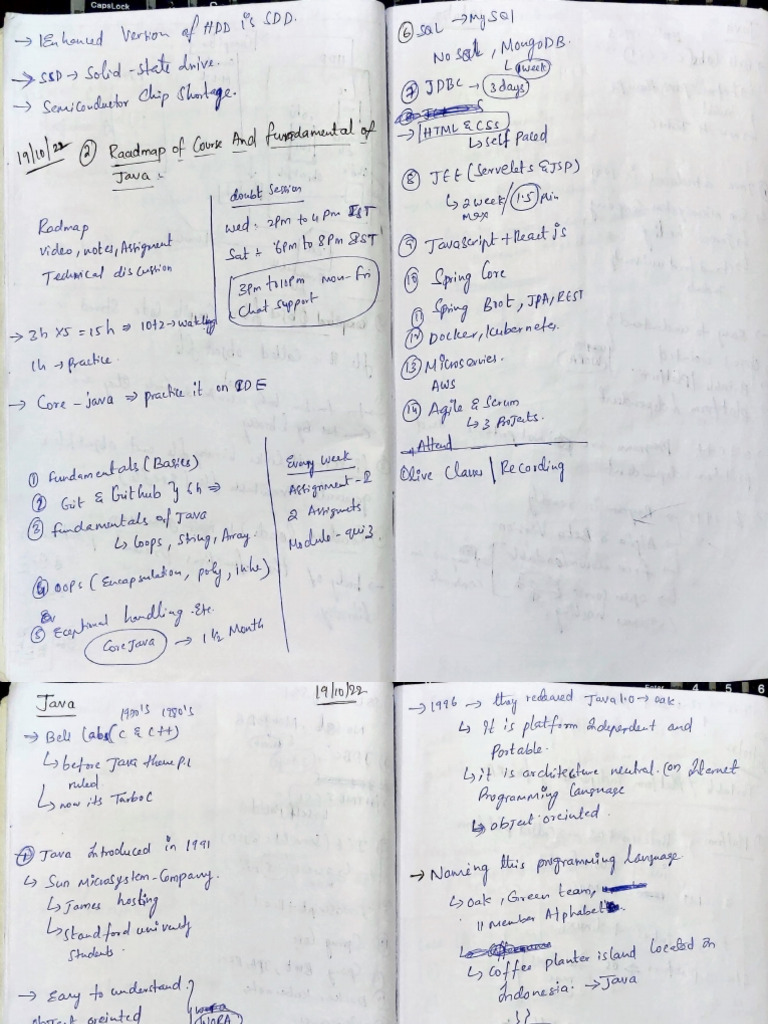 CapsLock
→ Enhanced Version of HDD is SDD.
→ SSD → Solid-state drive.
→ Semiconductor Chip Shortage.
19/10/22 ② Raadmap of Course And fundamental of
Java.
Radmap
Video, notes, Assignment
Technical discussion
doubt Session
Wed: 2pm to 4pm IST
Sat: 6pm to 8pm IST
3pm to 11pm mon-fri
Chat Support
→ 3h x5 = 15h ⇒ 10+2 → watching
1h → practice
→ Core-java ⇒ practice it on IDE
① Fundamentals (Basics)
② Git & Github } 6h ⇒
③ fundamentals of Java
↳ loops, String, Array
④ OOPs (Encapsulation, poly, inhe)
⑤ Exceptional handling etc.
Core Java → 1 1/2 Month
Every week
Assignment - 2
2 Assignments
Module - quiz.
⑥ SQL → MySQL
No SQL, MongoDB.
↳ 1 week
⑦ JDBC → 3 days
→ HTML & CSS
↳ self paced
⑧ JEE (Servelets & JSP)
↳ 2 week / 1.5 min
max
⑨ JavaScript + React js
⑩ Spring Core
⑪ Spring Boot, JPA, REST
⑫ Docker, Kubernetes.
⑬ Microservies.
AWS
⑭ Agile & Scrum
↳ 3 Projects.
→ Attend
① Live Classes | Recording
4 5 6
Java
19/10/22
1970's 1980's
→ Bell labs (C & C++)
↳ before Java these P.L
ruled
↳ now its Turbo C
① Java introduced in 1991
↳ Sun Microsystem - Company.
↳ James hosting
↳ Standford university
Students.
→ Easy to understand
object oreinted
WORA
→ 1996 → they released Java 1.0 → oak.
↳ It is platform independent and
Portable.
↳ it is architecture neutral (on Internet
Programming language
↳ object oreinted.
→ Naming this programming language
↳ oak, Green team,
11 Member Alphabet
↳ Coffee planter island located in
Indonesia. → Java